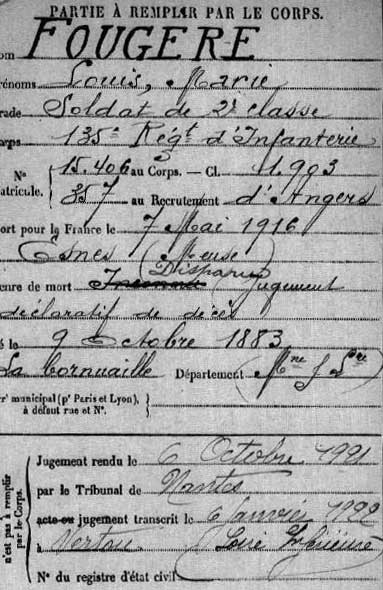 PARTIE À REMPLIR PAR LE CORPS.
om FOUGERE
rénoms Louis, Marie
rade Soldat de 2e classe
orps 135e Régt d'Infanterie
N° 15.406 au Corps. — Cl. 1903
atricule. 357 au Recrutement d'Angers
ort pour la France le 7 Mai 1916
Esnes (Meuse)
Disparu
enre de mort Jugement
déclaratif de décès
é le 9 Octobre 1883
La Cornuaille Département Mne & Lre
rt municipal (pr Paris et Lyon),
à défaut rue et N°.
n'est pas à remplir
par le Corps.
Jugement rendu le 6 Octobre 1921
par le Tribunal de Nantes
acte ou jugement transcrit le 6 Janvier 1922
à Vertou Loire Inférieure
N° du registre d'état civil